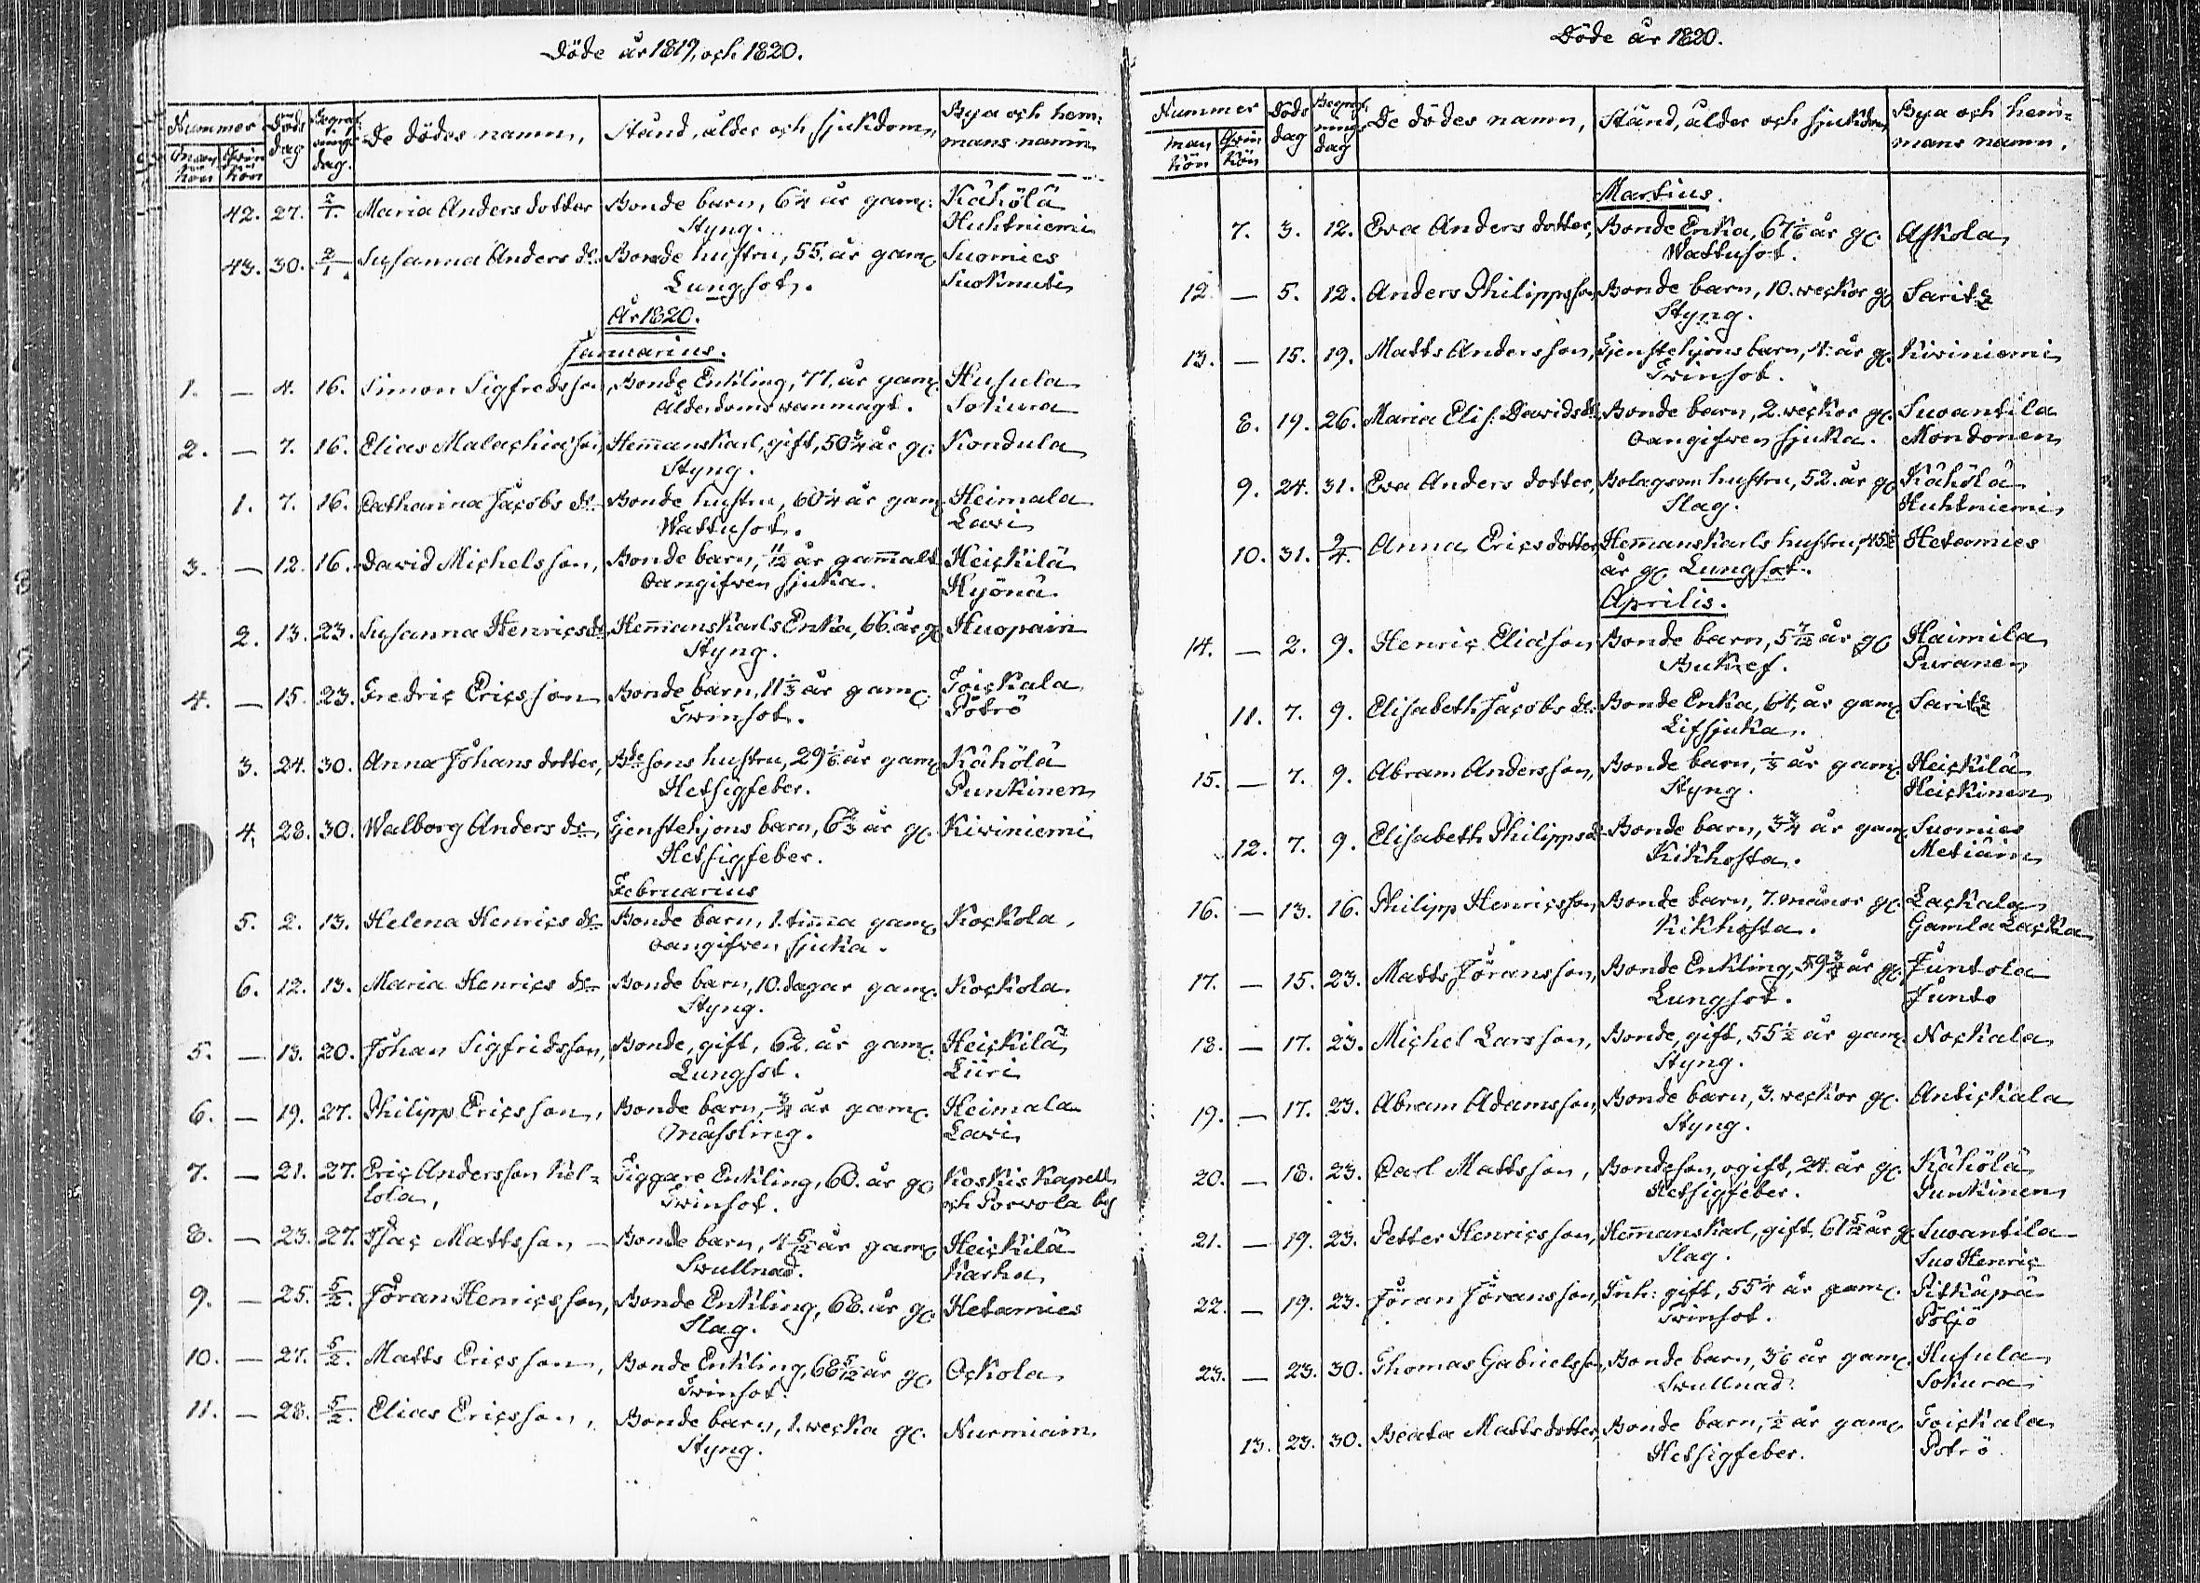 Döde år 1819, och 1820.
Nummer Döds dag Begrafnings dag. De dödes namn, Stånd, ålder och sjukdom, Bya och hemmans namn
man kön Qvin kön
42. 27. 2/1. Maria Anders dotter Bonde barn, 6 1/4 år gam. Kähölä
Styng. Huhtniemi
43. 30. 2/1. Susanna Anders dr. Bonde hustru, 55. år gam. Suomies
Lungsot. Suoknuti
År 1820.
Januarius.
1. — 4. 16. Simon Sigfredsson, Bonde Enkling, 77. år gam. Husula
Ålderdoms wanmagt. Sokura
2. — 7. 16. Elias Malachiasson, Hemmanskarl, gift, 50 3/4 år g. Kondula
Styng.
1. 7. 16. Catharina Jacobs dr. Bonde hustru, 60 1/4 år gam. Heimala
Wattusot. Lavi
3. — 12. 16. David Michelsson, Bonde barn, 11/12 år gammalt Heickilä
Oangifven sjuka. Hyönä
2. 13. 23. Susanna Henrics dr. Hemmanskarls Enka, 66. år g. Huopain
Styng.
4. — 15. 23. Fredric Ericsson Bonde barn, 11 1/3 år gam. Toickala
Twinsot. Potrö
3. 24. 30. Anna Johans dotter, Bde sons hustru, 29 1/6 år gam. Kähölä
Hetsigfeber. Punkinen
4. 28. 30. Walborg Anders dr. Tjenstehjons barn, 6 2/3 år g. Kiviniemi
Hetsigfeber.
Februarius
5. 2. 13. Helena Henrics dr. Bonde barn, 1. timma gam. Kockola,
oangifven sjuka.
6. 12. 13. Maria Henrics dr. Bonde barn, 10. dagar gam. Kockola.
Styng.
5. — 13. 20. Johan Sigfridsson, Bonde, gift, 62. år gam. Heickilä
Lungsot. Liiri
6. — 19. 27. Philipp Ericsson, Bonde barn, 3/4 år gam. Heimala
Mässling. Lavi
7. — 21. 27. Eric Andersson Kel- Tiggare Enkling, 60. år g. Koskis Kapell
lola, Twinsot. och Porvola by
8. — 23. 27. Isac Mattsson — Bonde barn, 4 5/12 år gam. Heickilä
Svullnad. Karhu
9. — 25. 5/2. Jöran Henricsson, Bonde Enkling, 68. år g. Hetamies
Slag.
10. — 27. 5/2. Matts Ericsson, Bonde Enkling, 68 5/12 år g. Ockola
Twinsot.
11. — 28. 5/2. Elias Ericsson, Bonde barn, 1. wecka g. Nurmiain
Styng.
Döde år 1820.
Nummer Döds dag Begrafnings dag De dödes namn, Stånd, ålder och sjukdom Bya och hemmans namn.
man kön Qvin kön
Martius.
7. 3. 12. Eva Anders dotter, Bonde Enka, 67 1/6 år g. Askola
Wattusot.
12. — 5. 12. Anders Philippsson Bonde barn, 10. weckor g. Saritz
Styng.
13. — 15. 19. Matts Andersson, Tjenstehjons barn, 4. år g. Kiviniemi
Twinsot.
8. 19. 26. Maria Elis: Davids dr. Bonde barn, 2. weckor g. Suoantila
oangifven sjuka. Mondonen
9. 24. 31. Eva Anders dotter, Bolagsm: hustru, 52. år g. Kähölä
Slag. Huhtniemi
10. 31. 2/4. Anna Erics dotter Hemmanskarls hustru, 45 Hetamies
år g. Lungsot.
Aprilis.
14. — 2. 9. Henric Eliasson Bonde barn, 5 7/12 år g. Haimila
Bukref. Puranen
11. 7. 9. Elisabeth Jacobs dr. Bonde Enka, 64. år gam. Saritz
Lifsjuka.
15. — 7. 9. Abram Andersson, Bonde barn, 1/3 år gam. Heickilä
Styng. Heickinen
12. 7. 9. Elisabeth Philipps dr. Bonde barn, 3 3/4 år gam. Suomies
Kikhosta. Metiäin
16. — 13. 16. Philipp Henricsson Bonde barn, 7. månor g. Lackala
Kikhosta. Gamla Lacka
17. — 15. 23. Matts Jöransson, Bonde Enkling, 59 3/4 år g. Juntola
Lungsot. Junto
18. — 17. 23. Michel Larsson, Bonde, gift, 55 1/2 år gam. Nockala
Styng.
19. — 17. 23. Abram Adamsson, Bonde barn, 3. weckor g. Antickala
Styng.
20. — 18. 23. Carl Mattsson, Bondeson, ogift, 24. år g. Kähölä
Hetsigfeber. Punkinen
21. — 19. 23. Petter Henricsson, Hemmanskarl, gift, 61 5/12 år g. Suoantila
Slag. Suo Henric
22. — 19. 23. Jöran Jöransson, Inh: gift, 55 1/4 år gam. Pitkäpä
Twinsot. Pöljö
23. — 23. 30. Thomas Gabrielsson, Bonde barn, 3 1/6 år gam. Husula
Svullnad. Sokura
13. 23. 30. Beata Matts dotter, Bonde barn, 1/2 år gam. Toickala
Hetsigfeber. Potrö